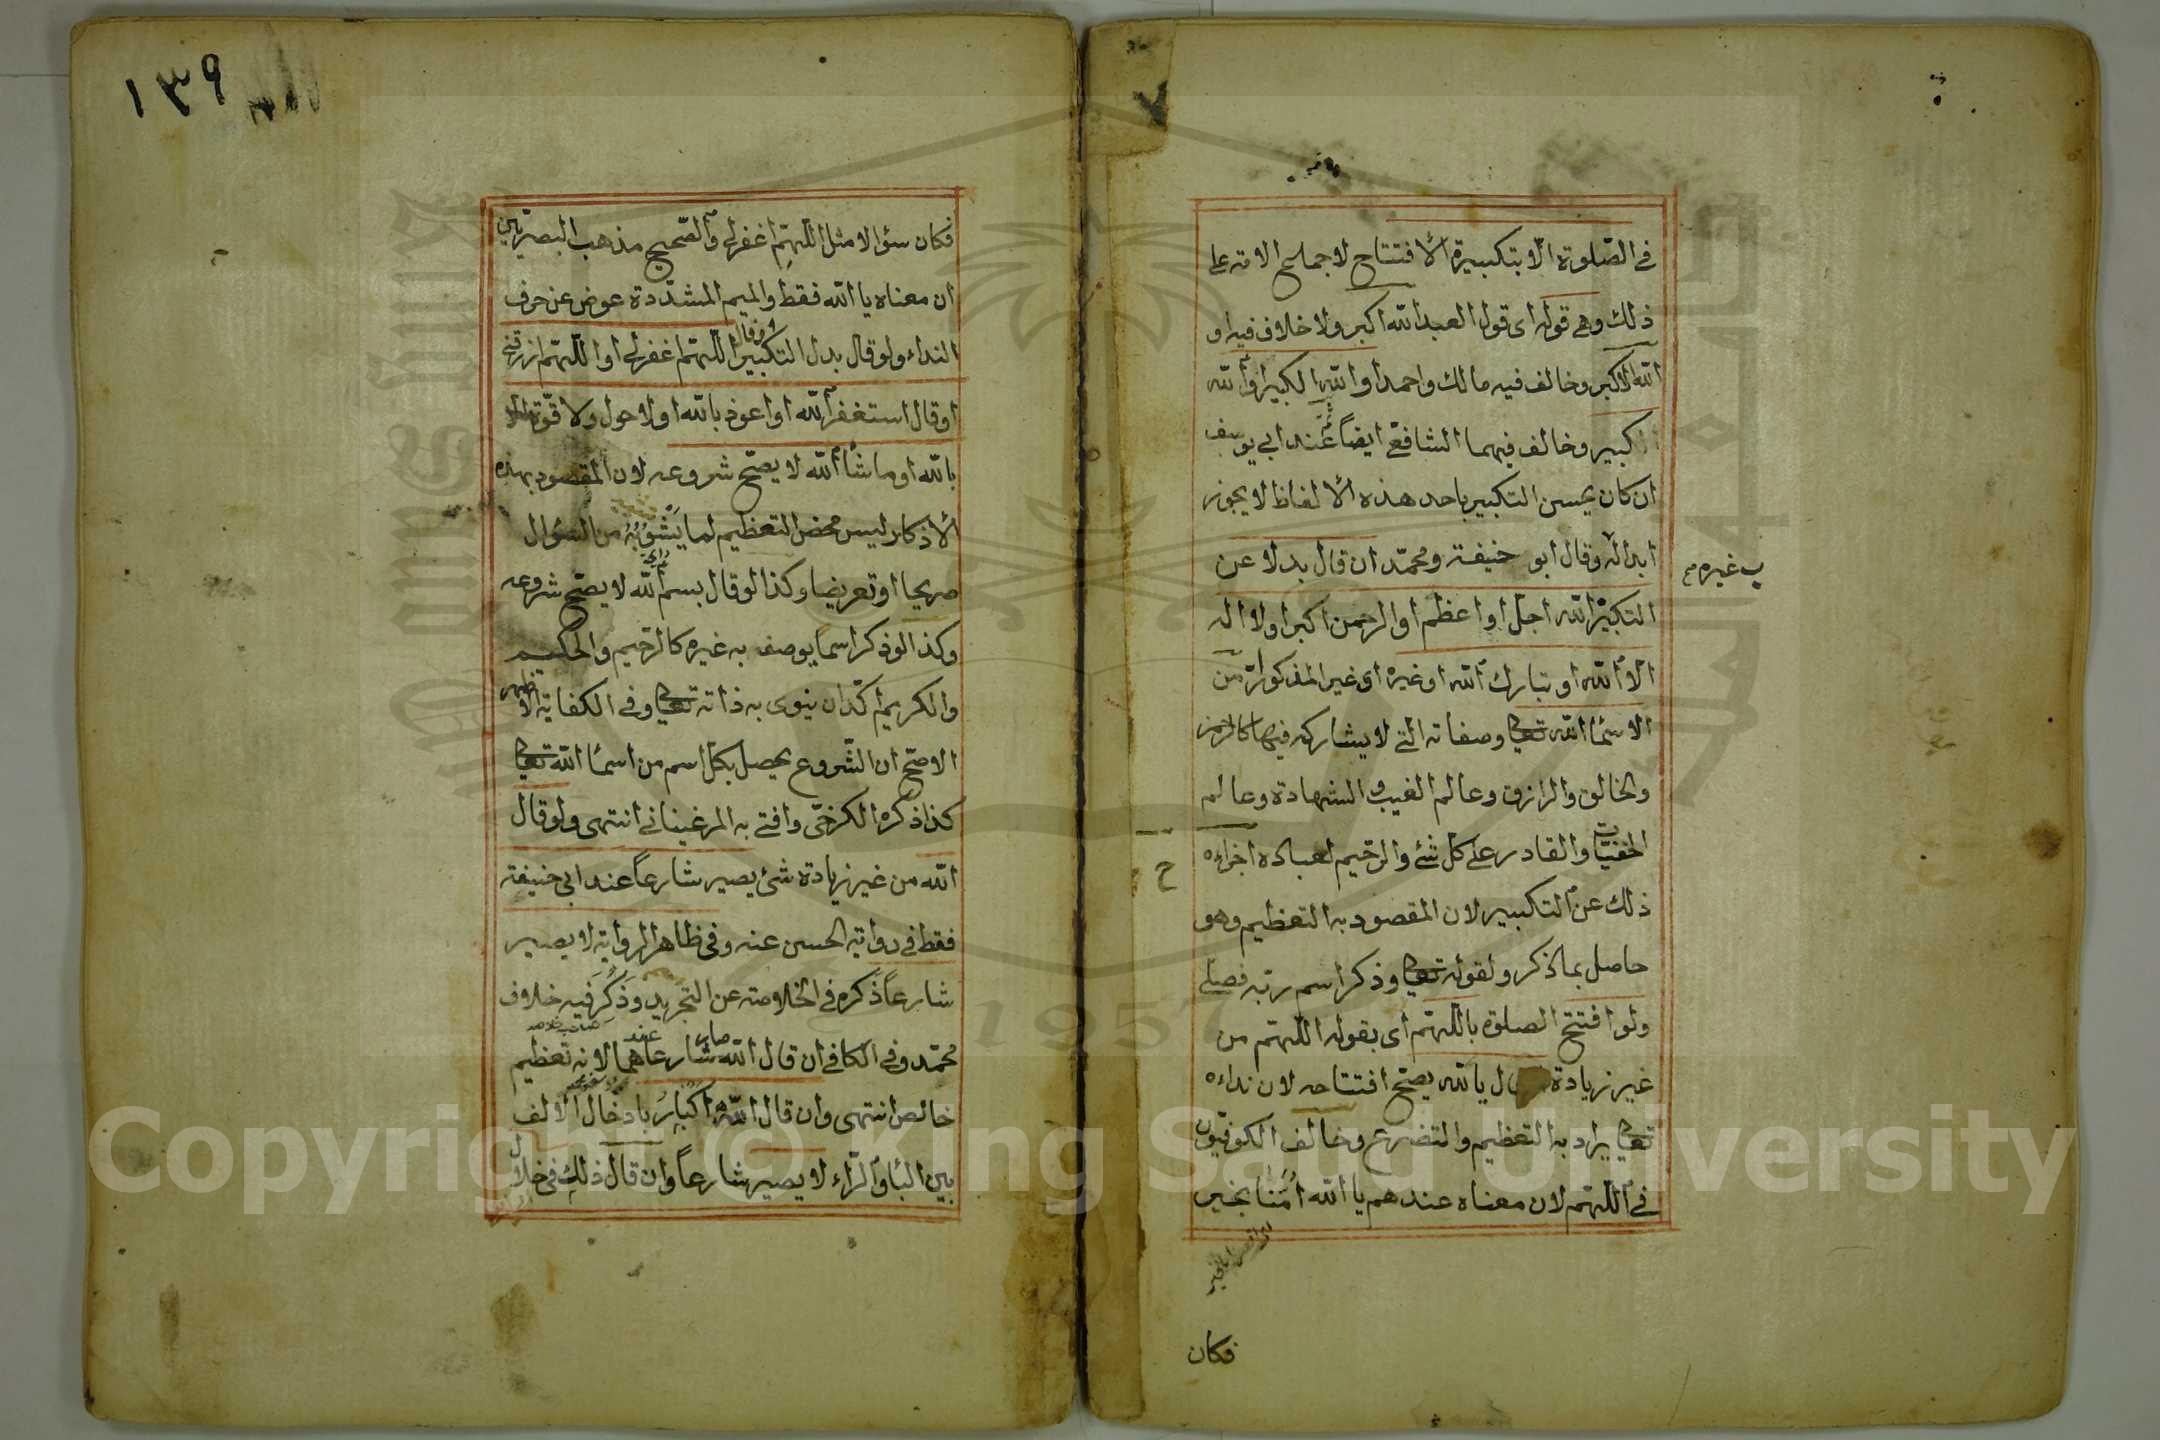 في الصّلوة الّا بتكبيرة الافتتاح لاجماع الامة على
ذلك وهي قوله اى قول العبد الله اكبر ولا خلاف فيه او
الله الاكبر وخالف فيه مالك واحمد او الله الكبير او الله
كبير وخالف فيهما الشافعي ايضاً عند ابي يوسف
ان كان يحسن التكبير باحد هذه الالفاظ لا يجوز
ابداله وقال ابو حنيفة ومحمّد ان قال بدلا عن
التكبير الله اجلّ او اعظم او الرحمن اكبر او لا اله
الا الله او تبارك الله او غيره اى غير المذكور من
الاسماء الله تعالى وصفاته التي لا يشاركه فيها كالرحمن
والخالق والرازق وعالم الغيب والشهادة وعالم
الخفيّات والقادر على كل شئ والرحيم لعباده اجزاءه
ذلك عن التكبير لان المقصود به التعظيم وهو
حاصل بما ذكر ولقوله تعالى وذكر اسم ربّه فصلى
ولو افتتح الصلوة باللّهمّ اى بقوله اللّهمّ من
غير زيادة قال يا الله يصحّ افتتاحه لان نداءه
تعالى يراد به التعظيم والتضرع وخالف الكوفيّون
في اللّهمّ لان معناه عندهم يا الله اُمَّنا بخير
فكان
ب غيره
ح
٧
١٣٩
فكان سؤالا مثل اللّهمّ اغفر لي والصّحيح مذهب البصريّين
ان معناه يا الله فقط والميم المشدّدة عوض عن حرف
النداء ولو قال بدل التكبير اللّهمّ اغفر لي او اللّهمّ ارزقني
او قال استغفر الله او اعوذ بالله او لا حول ولا قوّة الا
بالله او ما شاء الله لا يصحّ شروعه لان المقصود بهذه
الاذكار ليس محض التعظيم لما يَشُوبُهُ من السؤال
صريحا او تعريضا وكذا لو قال بسم الله لا يصحّ شروعه
وكذا لو ذكر اسما يوصف به غيره كالرحيم والحكيم
والكريم الّا ان ينوى به ذاته تعالى وفي الكفاية الاظهر
الاصحّ ان الشّروع يحصل بكلّ اسم من اسماء الله تعالى
كذا ذكره الكرخيّ وافتى به المرغيناني انتهى ولو قال
الله من غير زيادة شئ يصير شارعاً عند ابي حنيفة
فقط في رواية الحسن عنه وفي ظاهر الرواية لا يصير
شارعاً ذَكَره في الخلاصة عن التجريد وذَكَرَ فيه خلاف
محمّد وفي الكافي ان قال الله صار شارعا عندهما لانه تعظيم
خالص انتهى وان قال الله اكبار بادخال الالف
بين الباء والرّاء لا يصير شارعاً وان قال ذلك في خلال
Copyright © King Saud University
1957